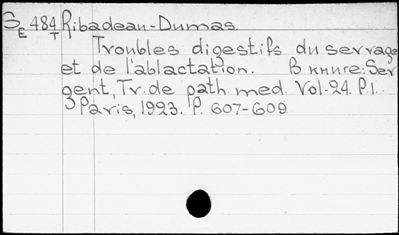 SE 484T Ribadeau-Dumas.
Troubles digestifs du sevrage
et de l'ablactation. В книге: Ser
gent, Tr. de path. med. Vol-24. P.1.
Paris, 1923. P. 607-609